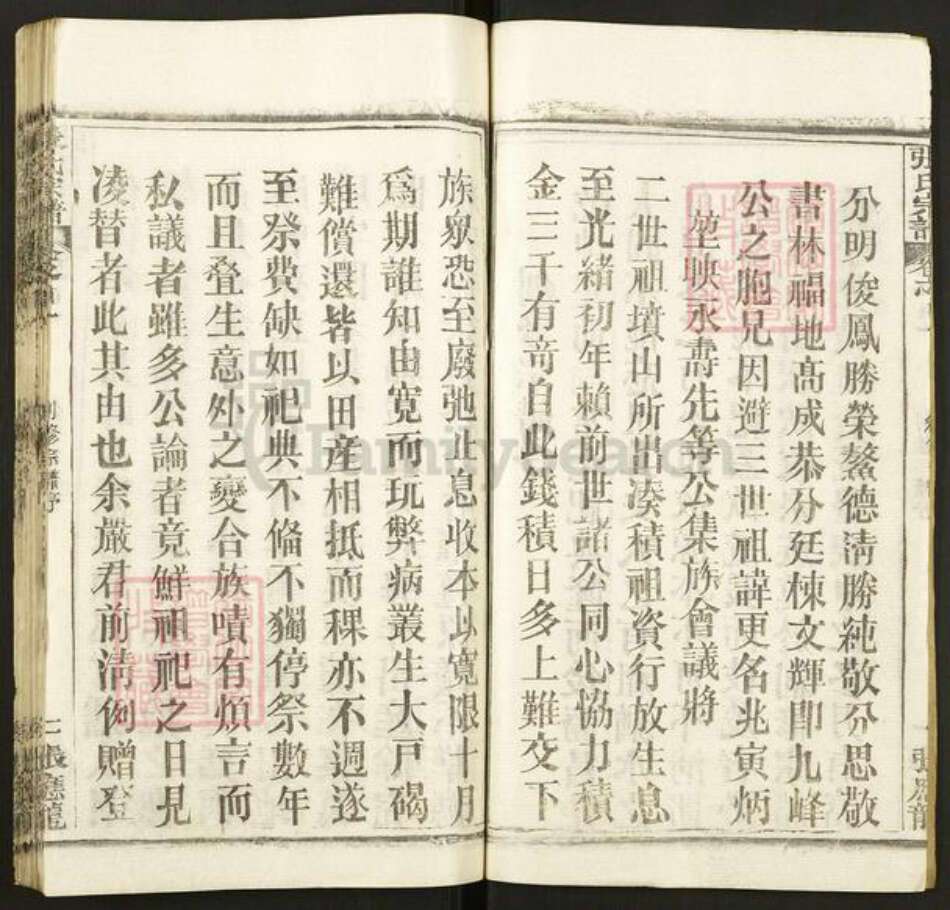 張氏宗譜
分明俊鳳勝榮鰲德清勝純敬分思敬
書林福地高成恭分廷棟文輝即九峰
公之胞兄因避三世祖諱更名兆寅炳
堃映永壽先等公集族會議將
二世祖墳山所出湊積祖資行放生息
至光緒初年賴前世諸公同心協力積
金三千有竒自此錢積日多上難交下
族衆恐至廢弛止息收本以寬限十月
爲期誰知由寬而玩弊病叢生大戶碣
難償還皆以田産相抵而稞亦不週遂
至祭費缺如祀典不偹不獨停祭數年
而且叠生意外之變合族嘖有煩言而
私議者雖多公論者竟鮮祖祀之日見
凌替者此其由也余嚴君前淸例贈登
修宗譜序
二 張應龍
FamilySearch